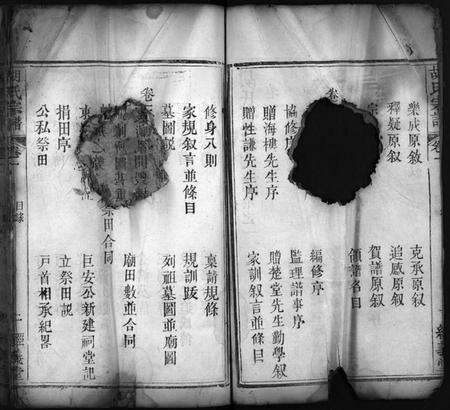 胡氏宗
樂成原敘 克承原叙
釋疑原叙 追感原叙
宗 賀譜原叙
領譜名目
卷
協修序 編修序
贈海槐先生序 監理譜事序
贈性謙先生序 贈楚堂先生勤學叙
家訓叙言並條目
修身八則 稟請規條
家規叙言並條目 規訓跋
墓圖説 列祖墓圖並廟圖
卷
廟田數並合同
祭田合同
巨安公新建祠堂記
捐田序 立祭田説
公私祭田 戶首相承紀畧
氏宗譜 卷一 目錄 二 堂